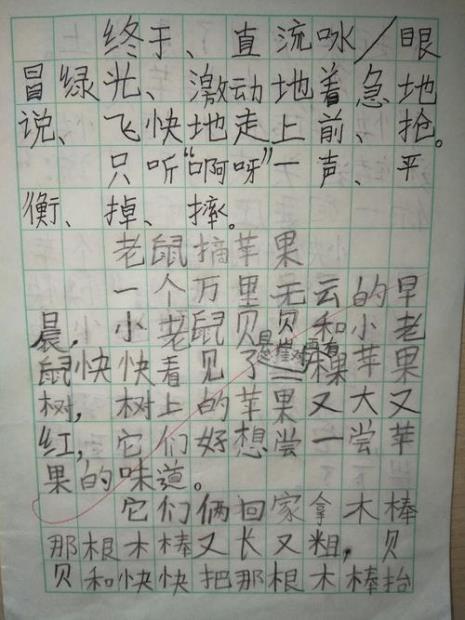 终于、直流咏/眼
冒绿光、激动地着急地
说、飞快地走上前、抢。
只听“啊呀”一声、平
衡、掉、摔。
老鼠摘苹果
一个万里无云的早
晨，小老鼠贝贝和小老
鼠快快看见了一棵苹果
树，树上的苹果又大又
红，它们好想尝一尝苹
果的味道。
它们俩回家拿木棒
那根木棒又长又粗，贝
贝和快快把那根木棒抬